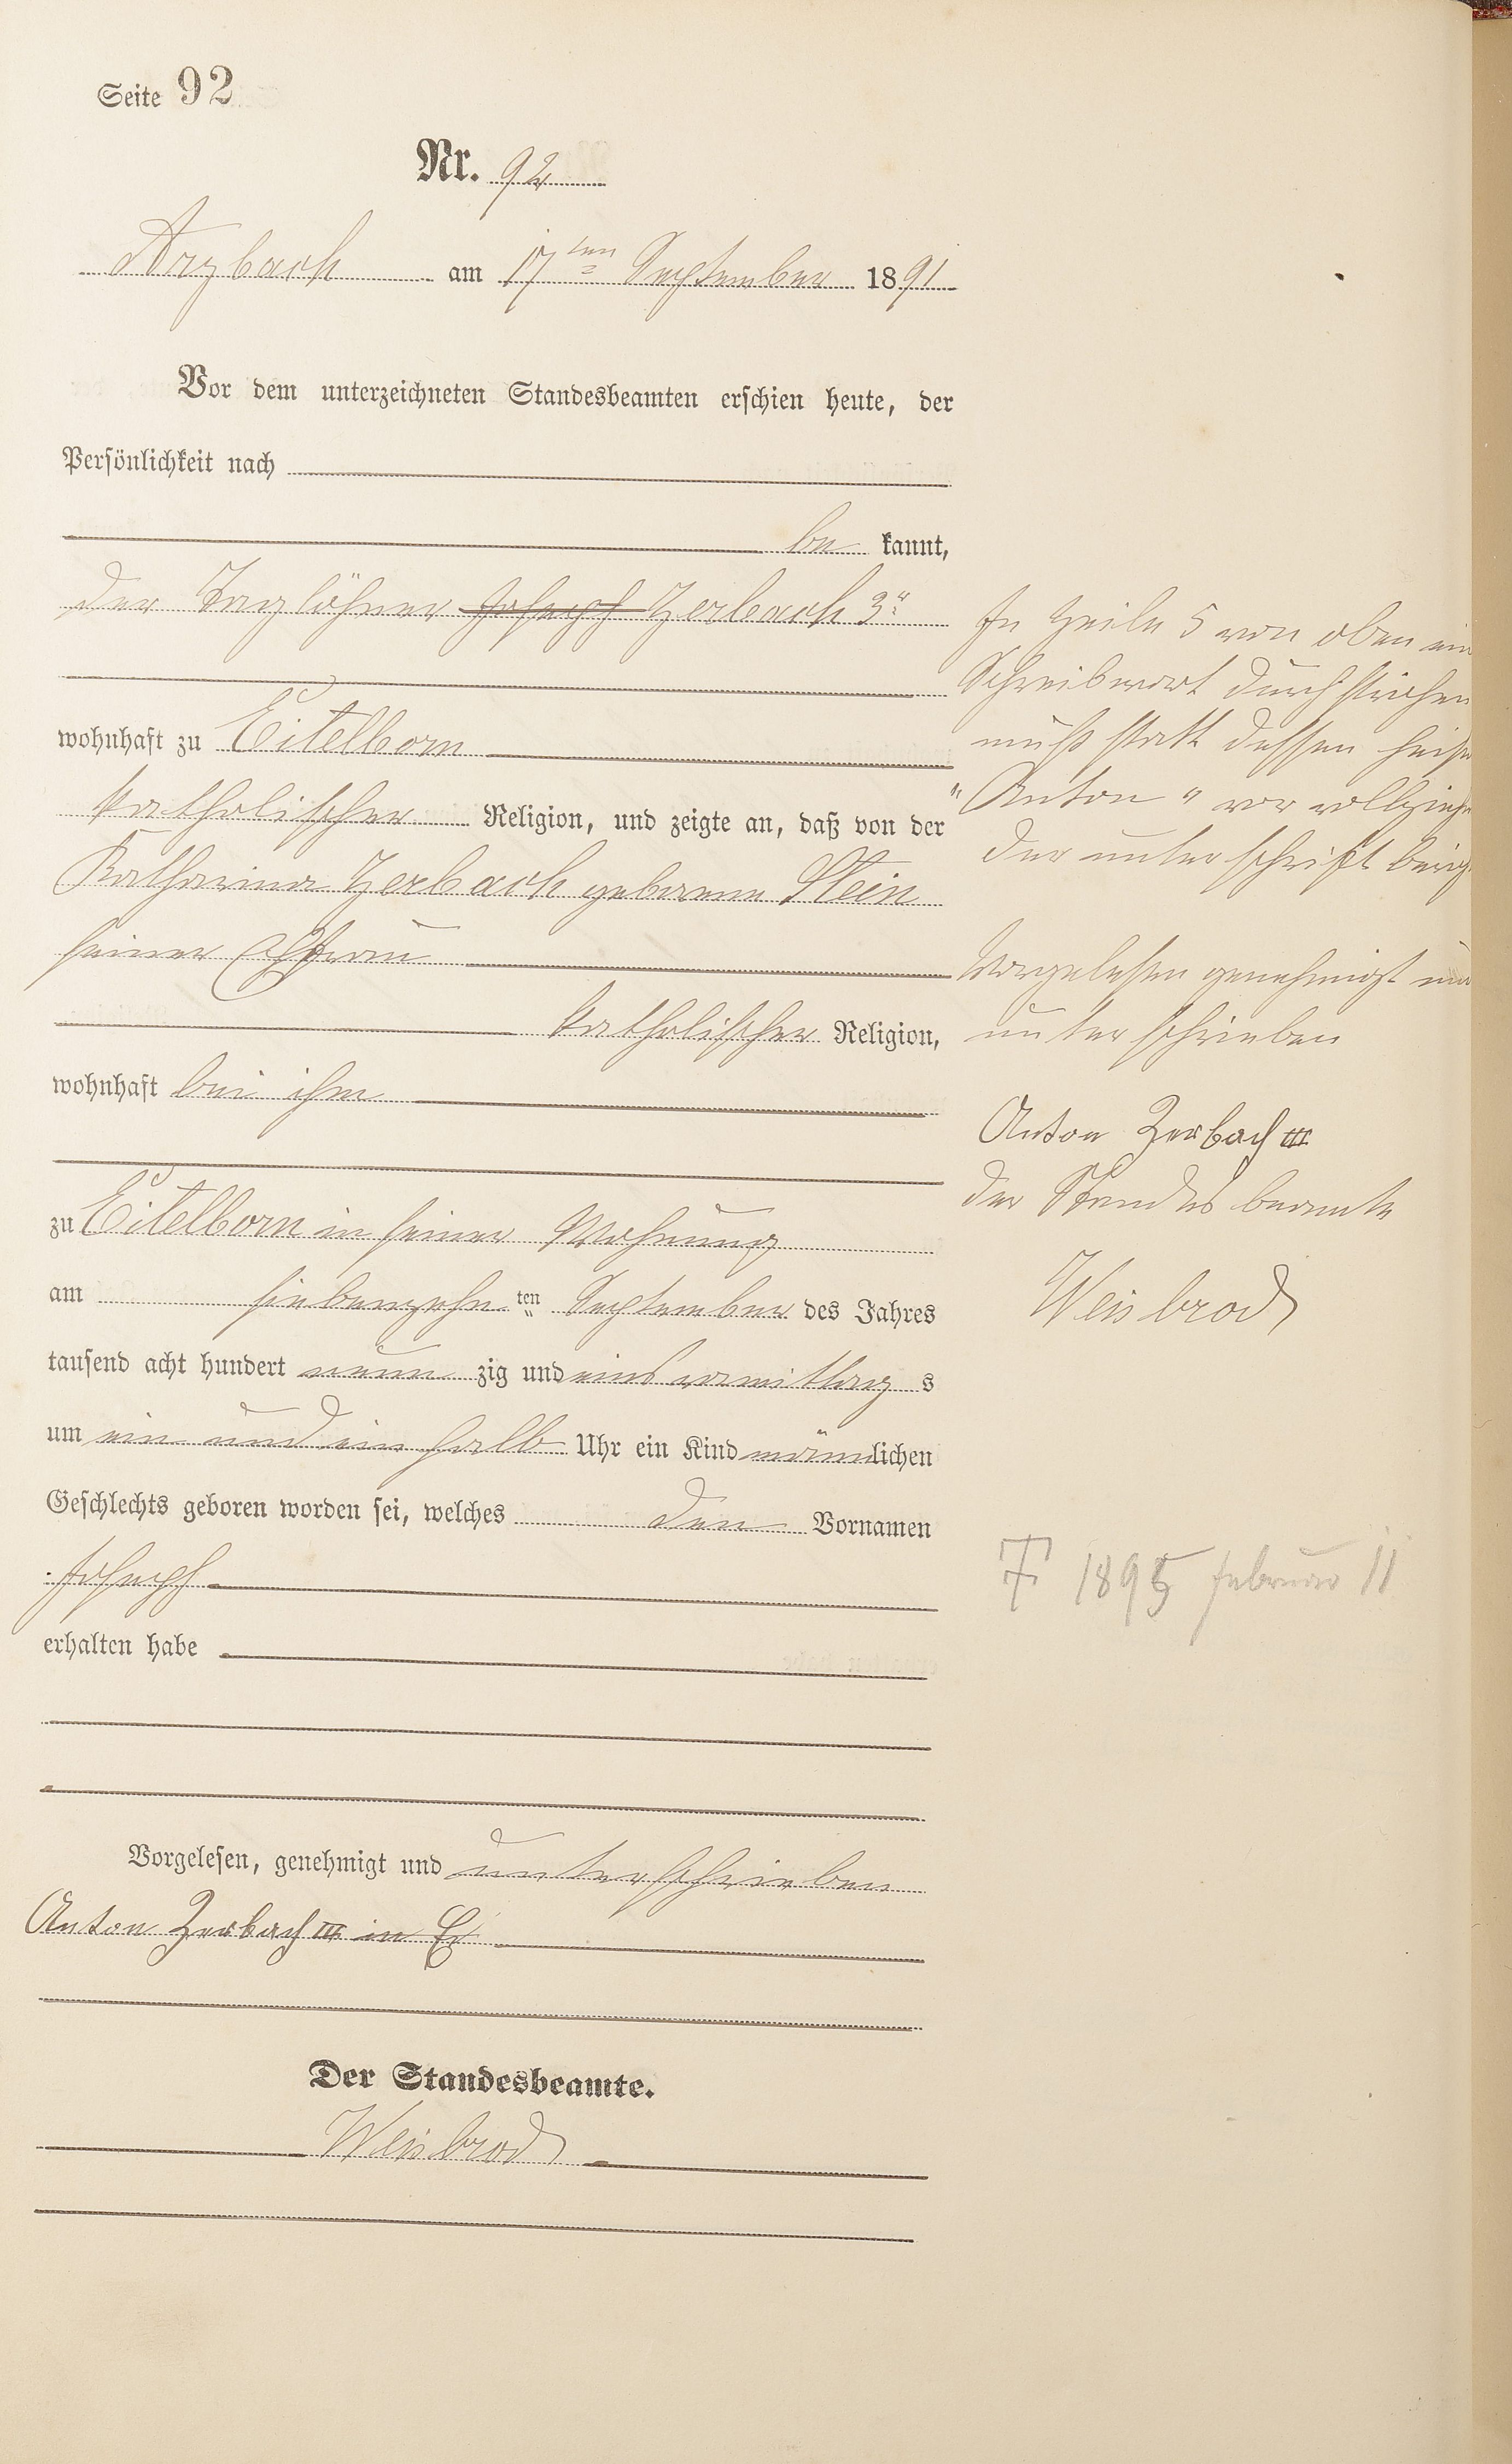 Seite 92
Nr. 92
Arzbach am 17ten September 1891
Vor dem unterzeichneten Standesbeamten erschien heute, der
Persönlichkeit nach
be kannt,
der Taglöhner Joseph Zerbach 3r
wohnhaft zu Eitelborn
katholischer Religion, und zeigte an, daß von der
Katharina Zerbach geborene Stein
seiner Ehefrau
katholischer Religion,
wohnhaft bei ihm
zu Eitelborn in seiner Wohnung
am siebenzehn ten September des Jahres
tausend acht hundert neun zig und eins vormittag s
um ein und ein halb Uhr ein Kind männlichen
Geschlechts geboren worden sei, welches den Vornamen
Joseph
erhalten habe
Vorgelesen, genehmigt und unterschrieben
Anton Zerbach III in
Der Standesbeamte.
Weisbrod
In Zeile 5 von oben ein
Schreibwort durchstrichen
muß statt dessen
"Anton" vor
der unterschrift
Vorgelesen genehmigt und
unterschrieben
Anton Zerbach III
der Standesbeamte
Weisbrod
† 1895 Februar 11